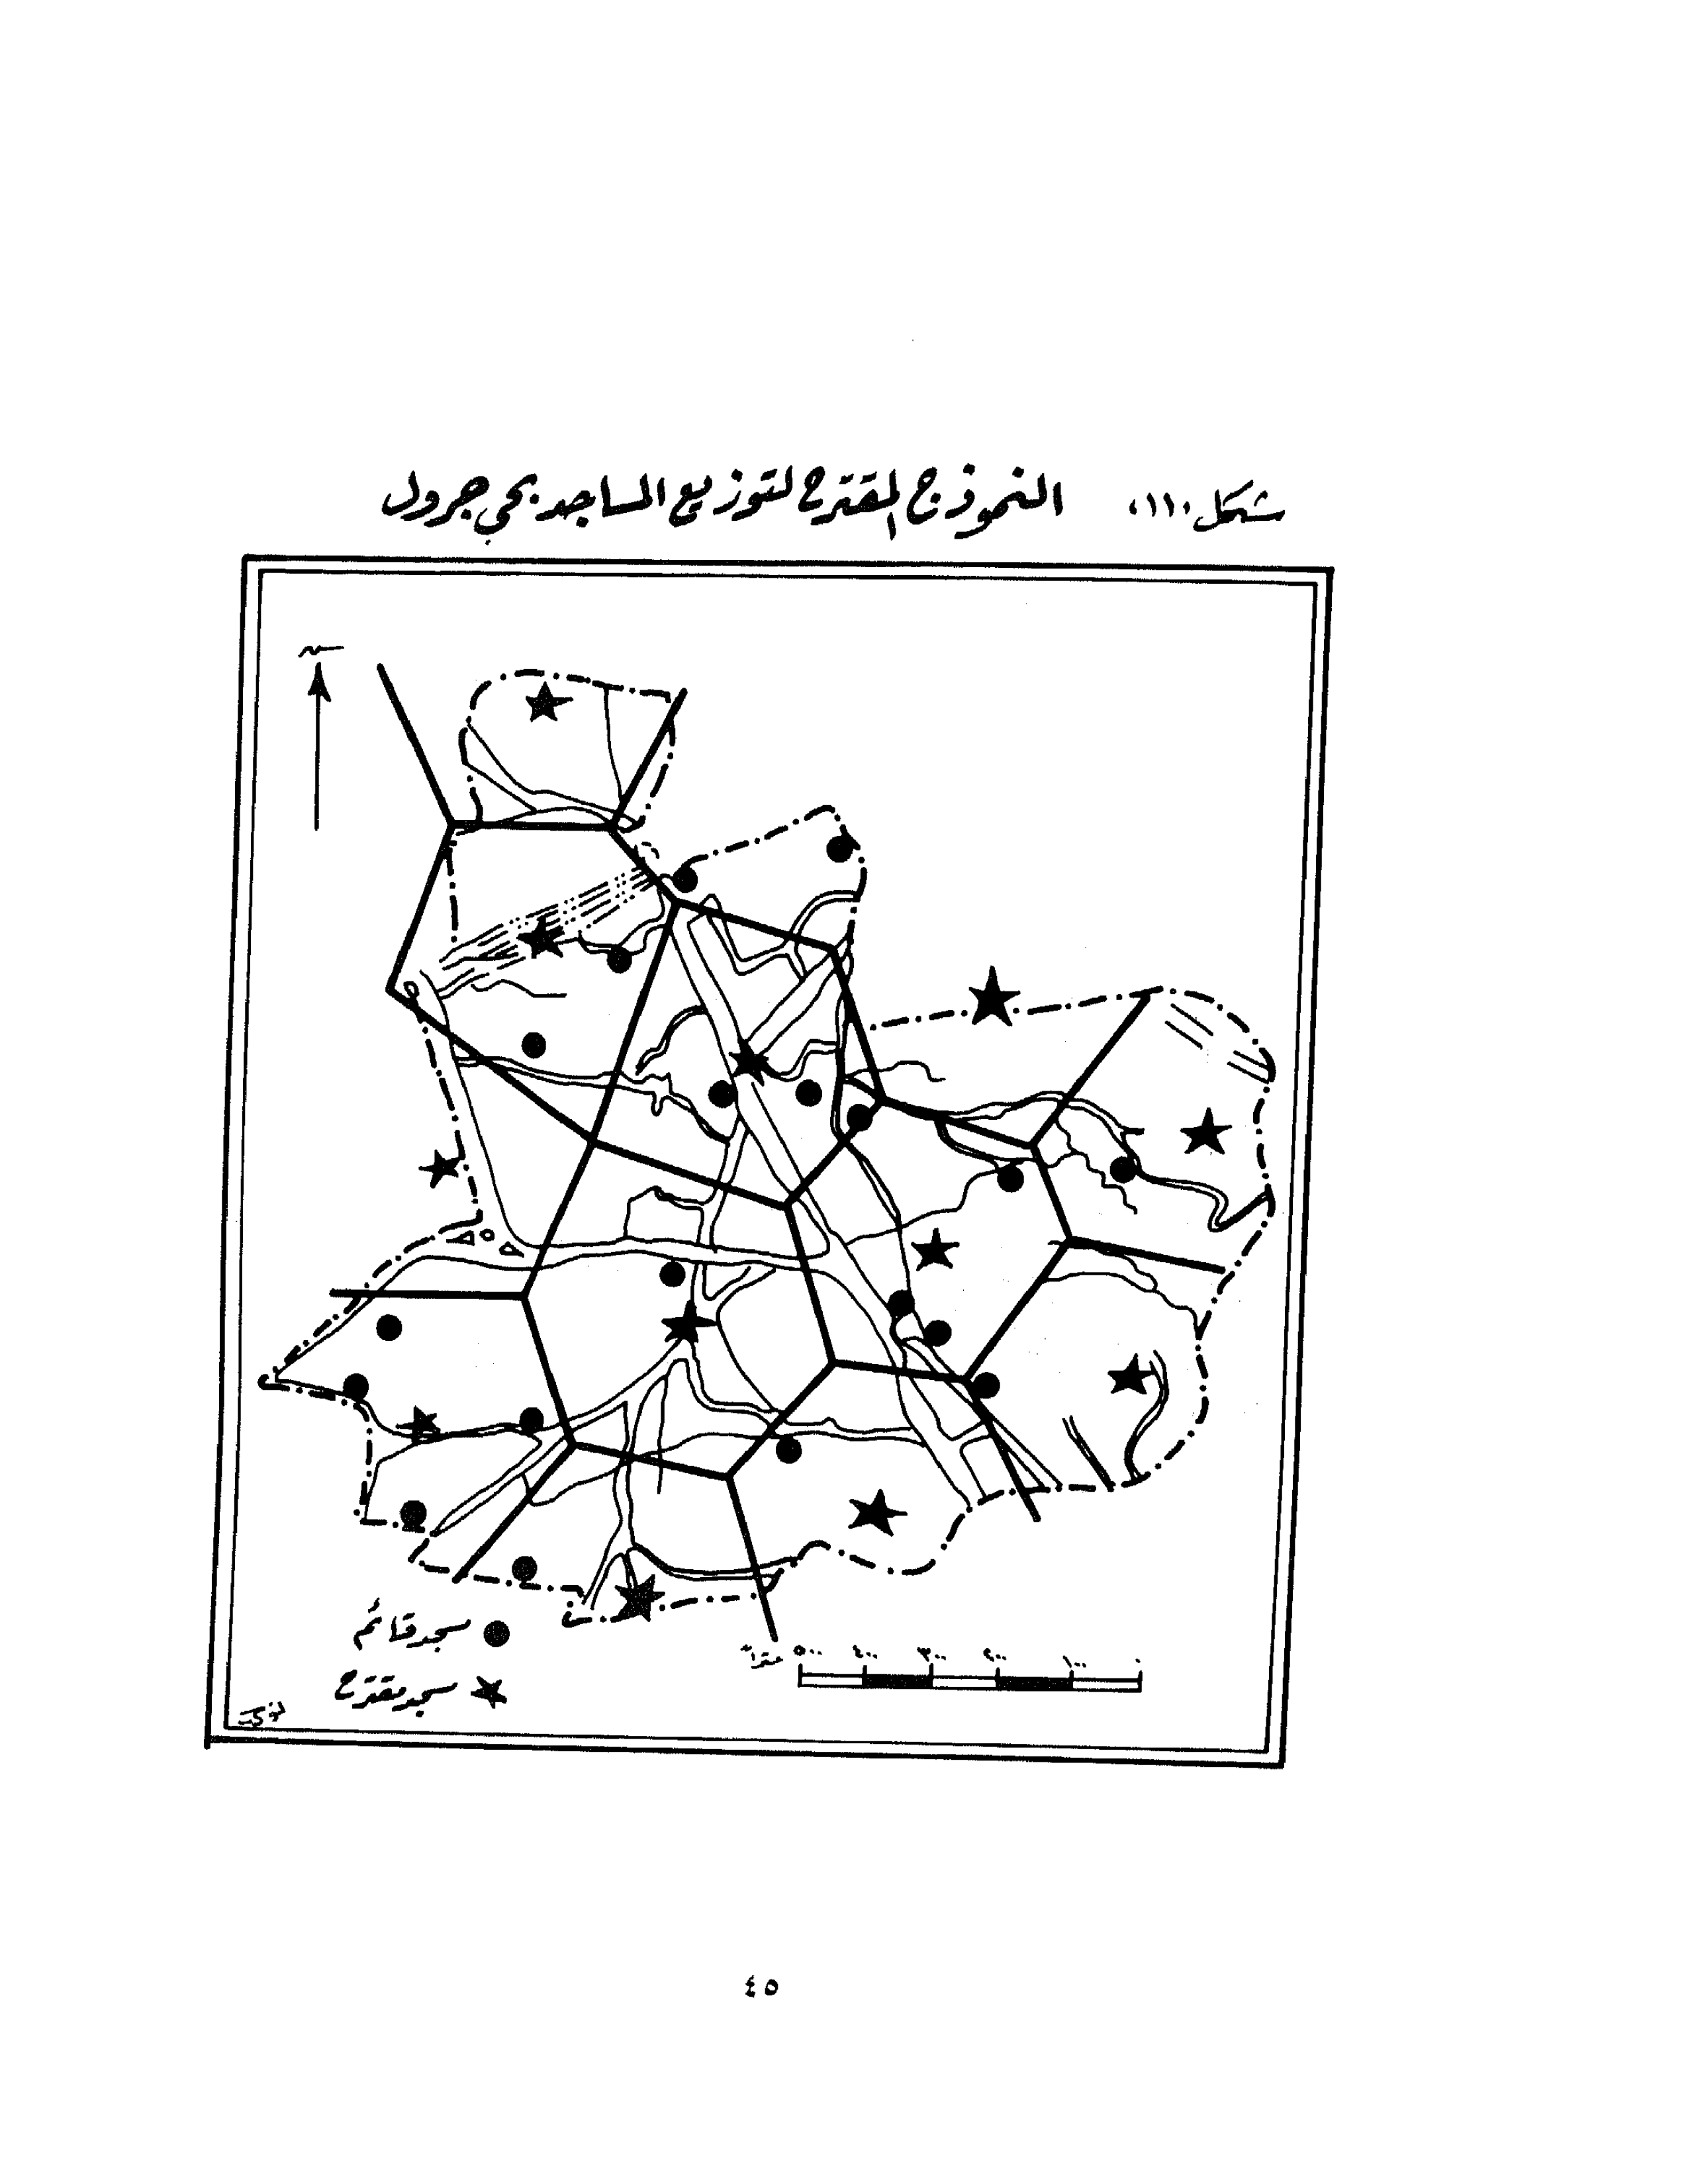 شكل (١١) النموذج المقترح لتوزيع المساجد بحي جرول
مسجد قائم
مسجد مقترح
٥٠٠ ٤٠٠ ٣٠٠ ٢٠٠ ١٠٠ ٠
٤٥